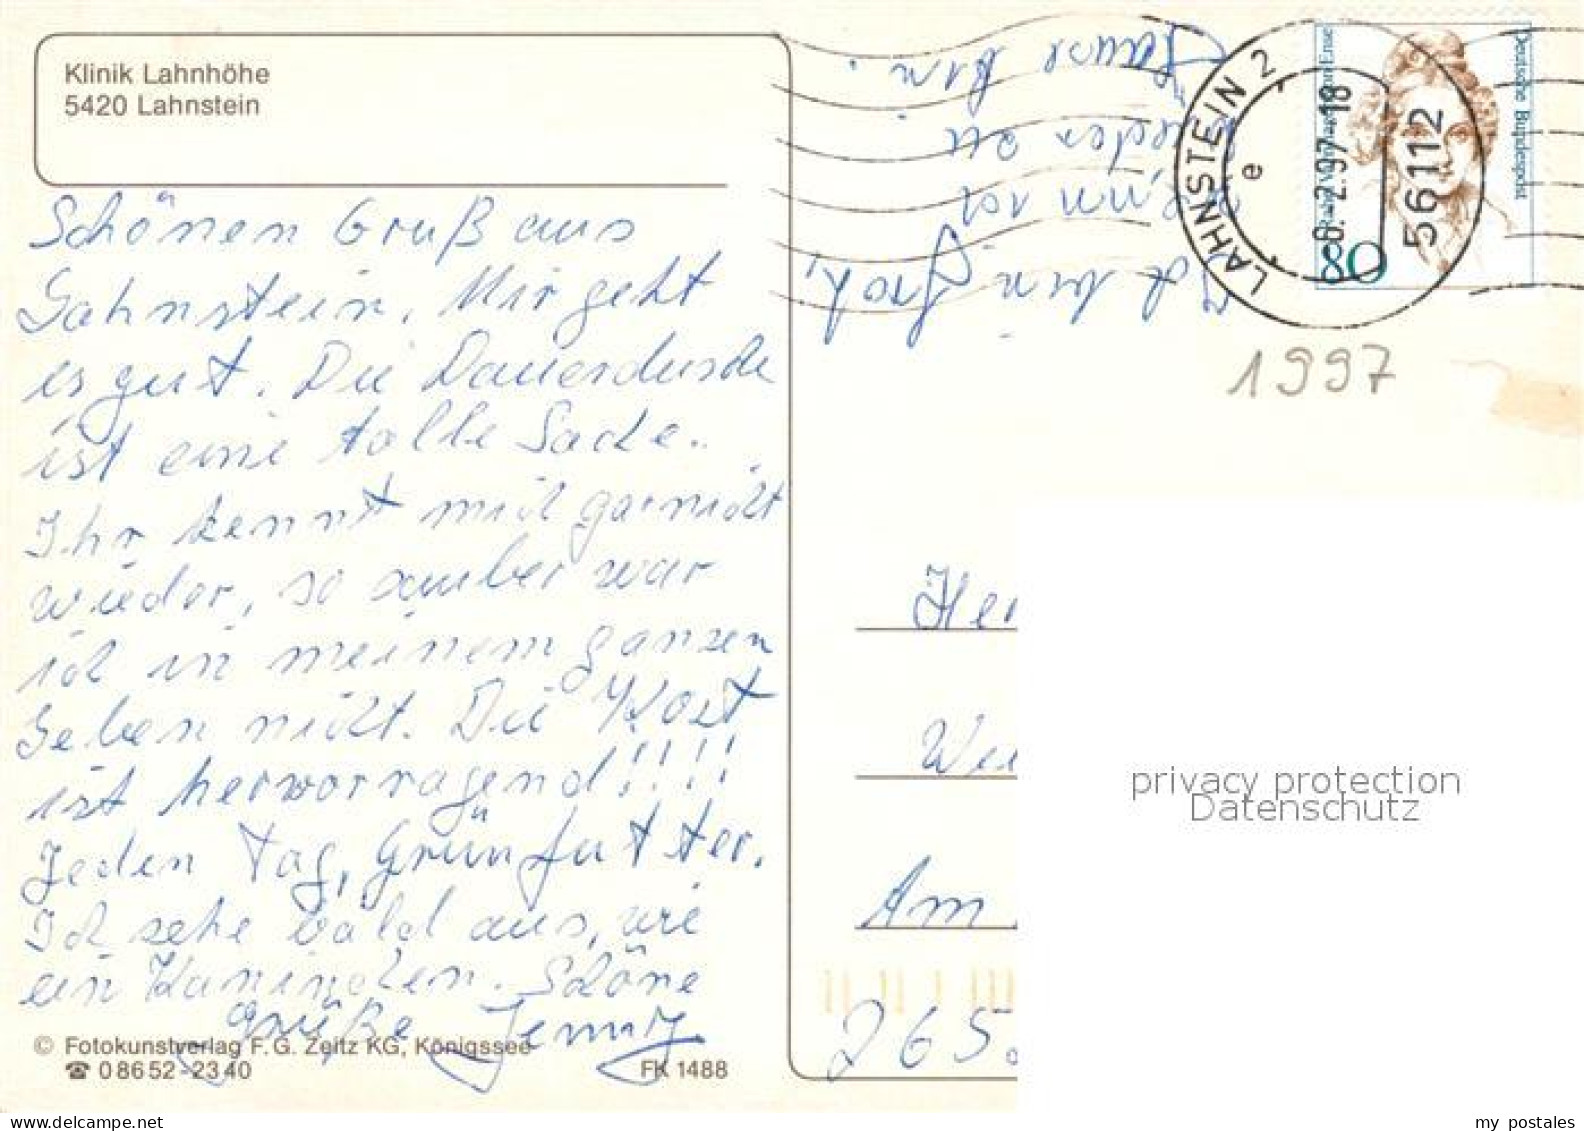 Klinik Lahnhöhe
5420 Lahnstein
Schönen Gruß aus
Lahnstein. Mir geht
es gut. Die Dauerdusche
ist eine tolle Sache.
Ihr kennt mich garnicht
wieder, so sauber war
ich in meinem ganzen
Leben nicht. Die Kost
ist hervorragend!!!!
Jeden Tag, Grünfutter.
Ich sehe bald aus, wie
ein Kaninchen. Schöne
Grüße Jenny
© Fotokunstverlag F. G. Zeitz KG, Königssee
☎ 08652-2340
FK 1488
Ich bin froh,
wenn ich
wieder zu
Hause bin.
LAHNSTEIN 2
e
-6. 2. 97-18
56112
Deutsche Bundespost
80
1997
Her
Wei
Am
265
privacy protection
Datenschutz
www.delcampe.net
my postales